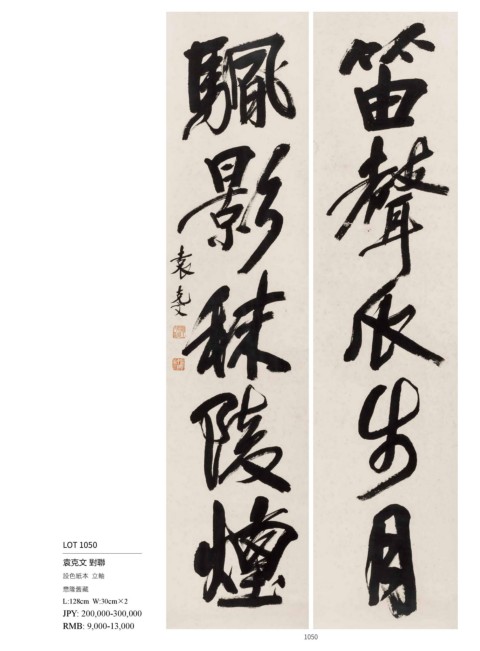 笛聲瓜步月
颿影秣陵煙
袁克文
LOT 1050
袁克文 對聯
設色紙本 立軸
懋隆舊藏
L:128cm W:30cm×2
JPY: 200,000-300,000
RMB: 9,000-13,000
1050